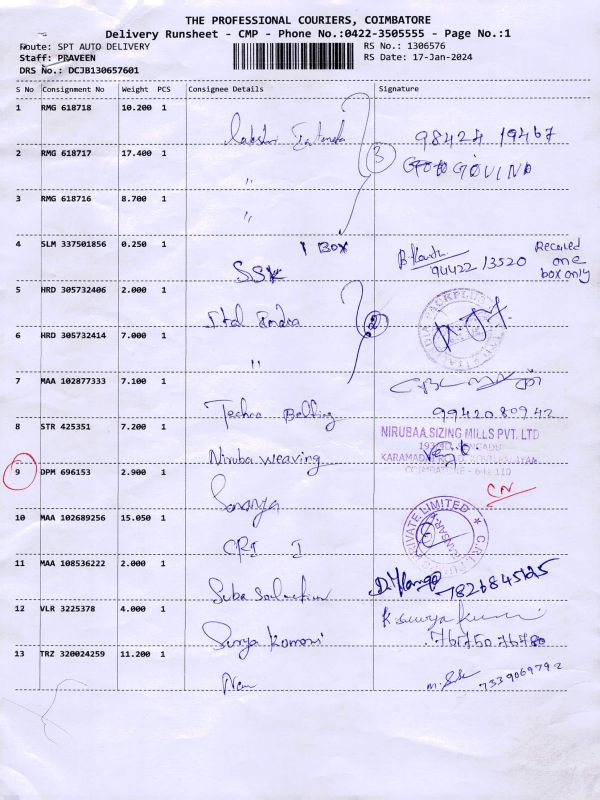 THE PROFESSIONAL COURIERS, COIMBATORE
Delivery Runsheet - CMP - Phone No.:0422-3505555 - Page No.:1
Route: SPT AUTO DELIVERY
RS No.: 1306576
Staff: PRAVEEN
RS Date: 17-Jan-2024
DRS No.: DCJB130657601
S No Consignment No Weight PCS Consignee Details Signature
1 RMG 618718 10.200 1
Lakshmi 98424 19467
2 RMG 618717 17.400 1
" 3 GOVIND
3 RMG 618716 8.700 1
"
4 SLM 337501856 0.250 1 1 Box
SSK 94422 13520 Received one box only
5 HRD 305732406 2.000 1
Ital Indra 2
6 HRD 305732414 7.000 1
"
7 MAA 102877333 7.100 1
Techno Belting 99420 80942
8 STR 425351 7.200 1
NIRUBAA SIZING MILLS PVT. LTD
Niruba weaving
9 DPM 696153 2.900 1
Saranya CN
10 MAA 102689256 15.050 1
PRIVATE LIMITED
CRI I
11 MAA 108536222 2.000 1
Suba Solution 7826845125
12 VLR 3225378 4.000 1
K. Surya Kumari
Surya Kumari 76750 76480
13 TRZ 320024259 11.200 1
7339069792